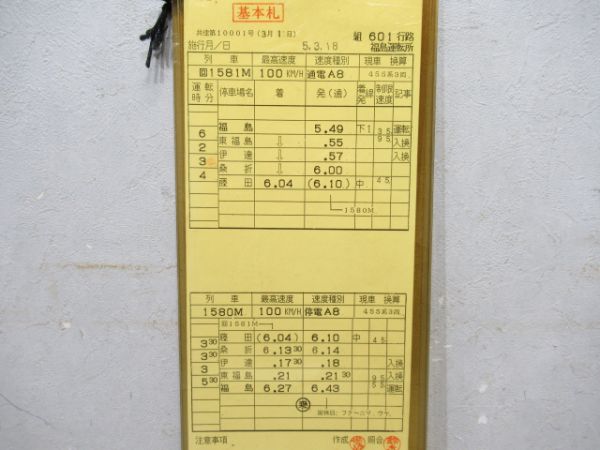 基本札
共達第10001号(3月1日) 組 601行路
施行月/日 5.3.18 福島運転所
列車 最高速度 速度種別 現車 換算
回1581M 100KM/H 通電A8 455系3両
運転時分 停車場名 着 発(通) 着発線 制限速度 記事
福島 5.49 下1 35 運転
6 東福島 ↓ .55 95 入換
2 伊達 ↓ .57 入換
3 桑折 6.00
4 藤田 6.04 (6.10) 中 45
1580M
列車 最高速度 速度種別 現車 換算
1580M 100KM/H 停電A8 455系3両
回1581M
藤田 (6.04) 6.10 中 45
3 30 桑折 6.13 30 6.14
3 30 伊達 .17 30 .18 入換
3 東福島 .21 .21 30 95 入換
5 30 福島 6.27 6.43 運転
注意事項 作成 照合